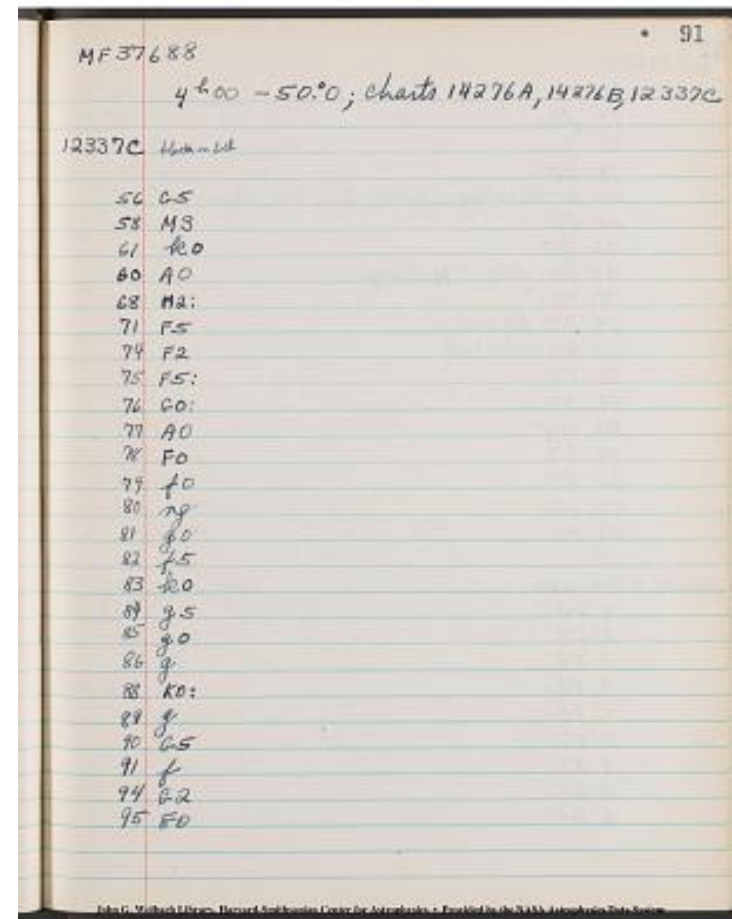 • 91
MF 37688
4ʰ00 -50.°0; charts 14276A, 14276B, 12337C
12337C
56 G5
58 M3
61 k0
60 A0
68 M2:
71 F5
74 F2
75 F5:
76 G0:
77 A0
78 F0
79 f0
80 ng
81 g0
82 f5
83 k0
84 g5
85 g0
86 g
88 K0:
89 g
90 G5
91 f
94 G2
95 F0
John G. Wolbach Library, Harvard-Smithsonian Center for Astrophysics • Provided by the NASA Astrophysics Data System